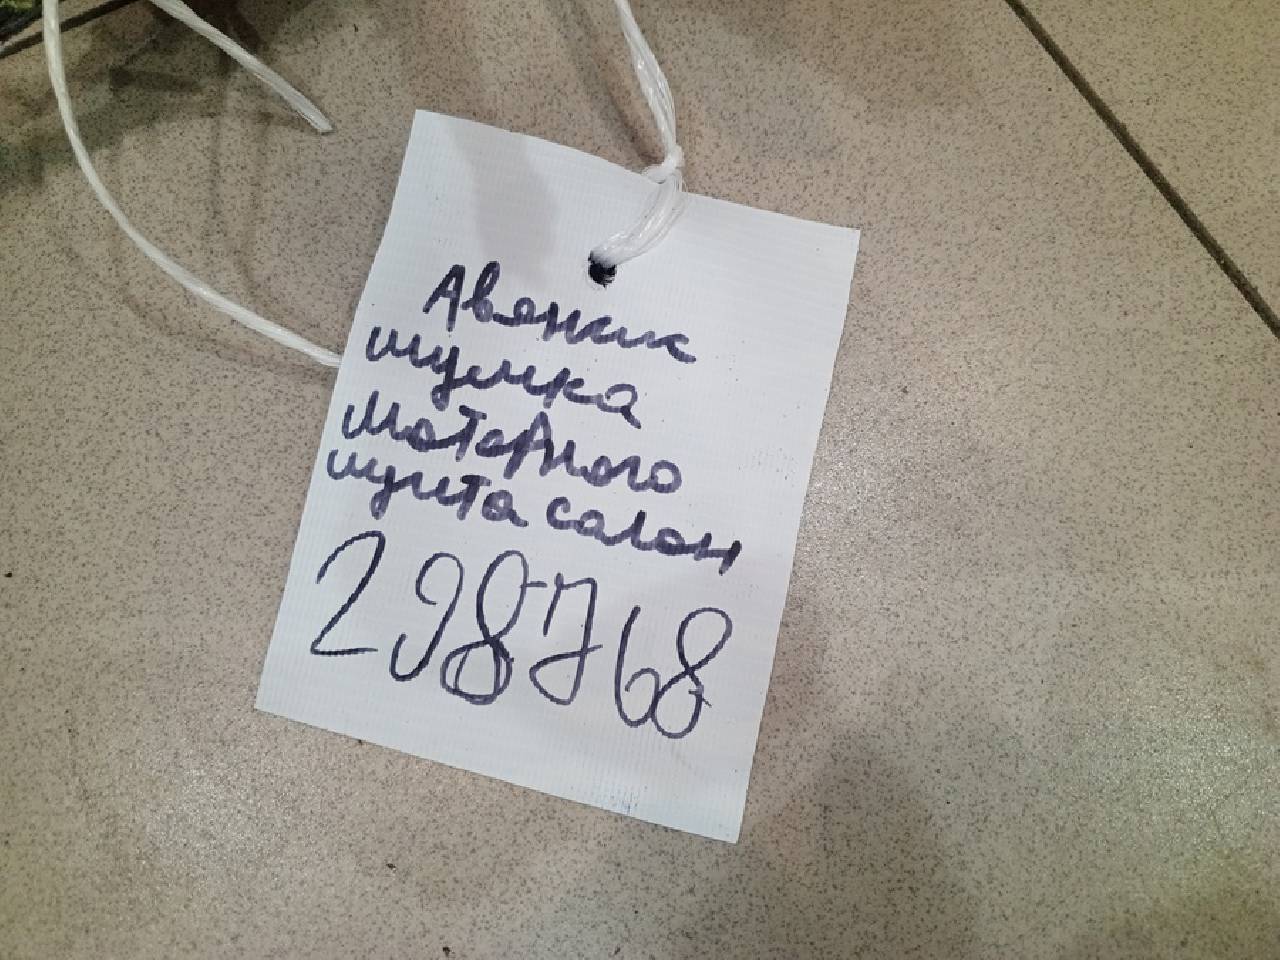 Авенсис
шумка
моторного
щита салон
298768